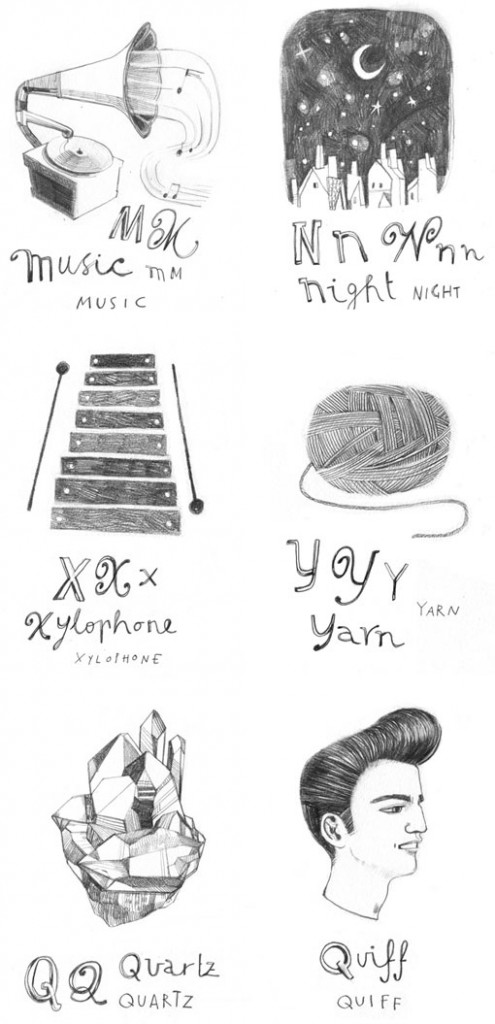 M M
music m M
MUSIC
N n N n n
night NIGHT
X X x
Xylophone
XYLOPHONE
Y Y Y
Yarn YARN
Q Q Quartz
QUARTZ
Quiff
QUIFF